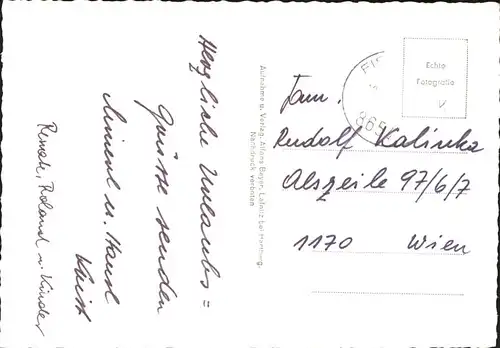 Herzliche Urlaubs=
grüsse senden
u. Hansl
Renate, Roland u. Kinder
Aufnahme u. Verlag: Alfons Bayer, Laßnitz bei Hartberg.
Nachdruck verboten
Echte
Fotografie
V
Fam.
Rudolf Kalinka
Alszeile 97/6/7
1170 Wien